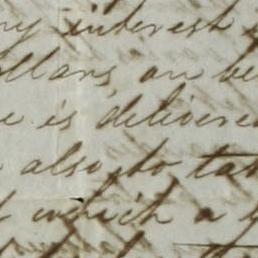 my interest
ollars, on be
e is delivered
also, to tak
of which a